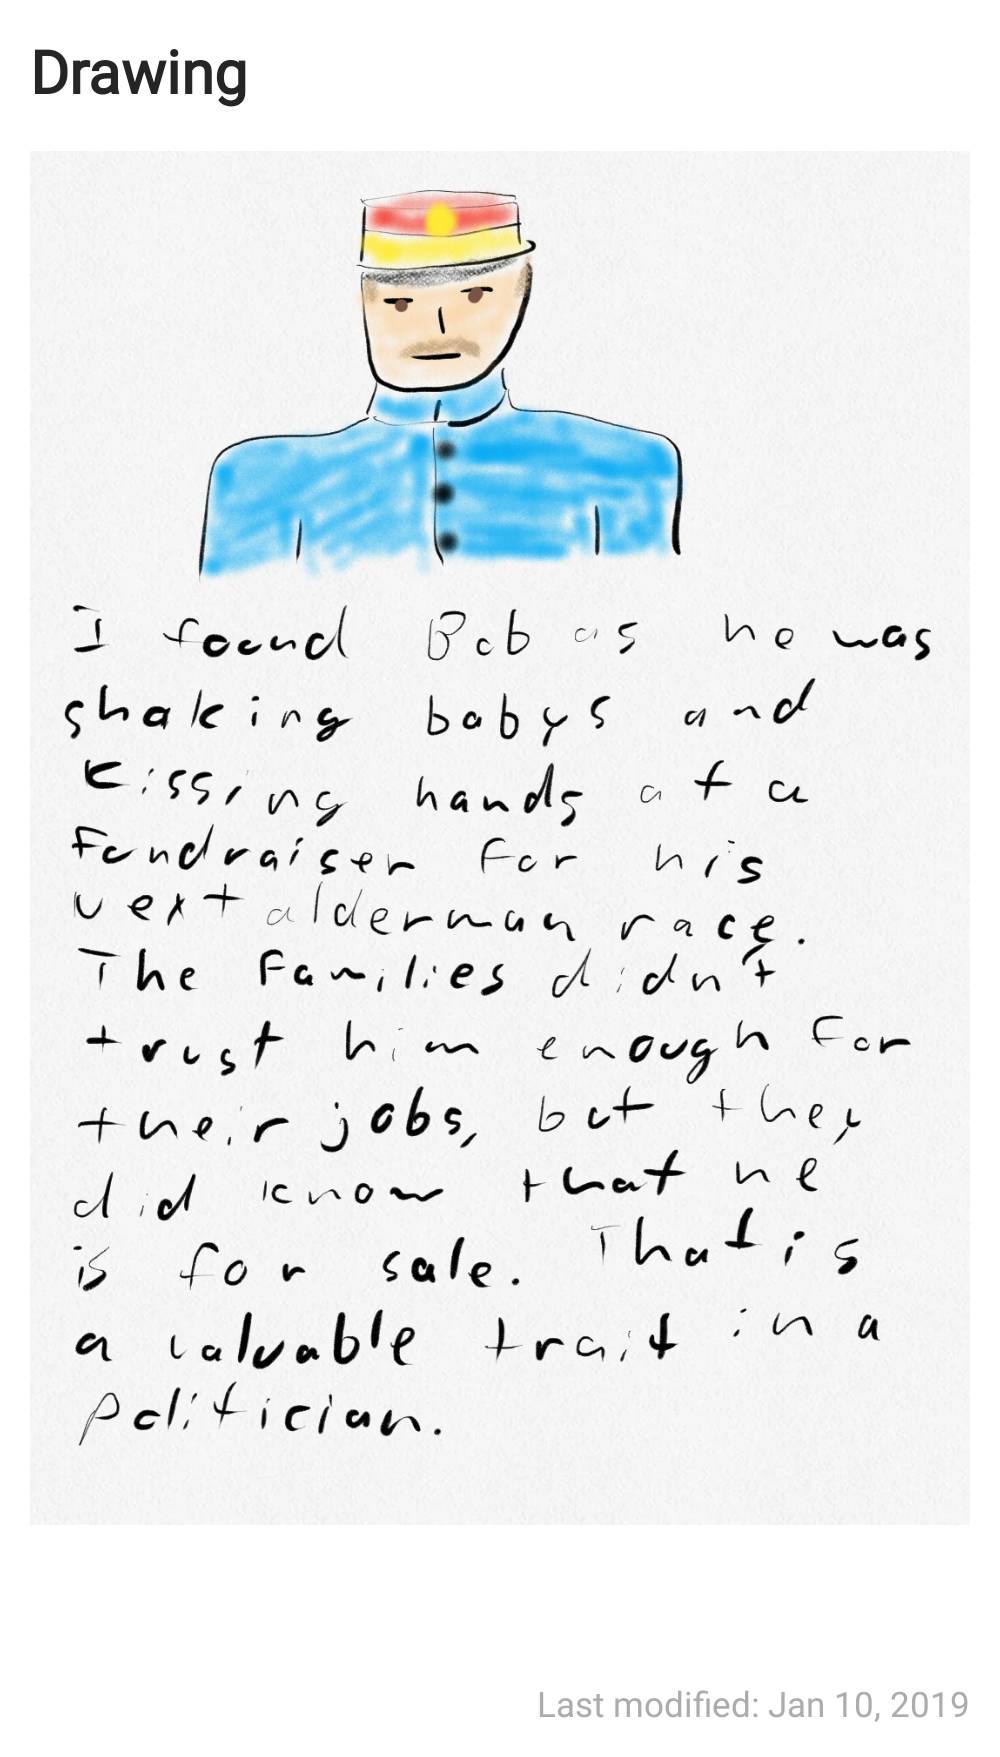 Drawing
I found Bob as he was
shaking babys and
kissing hands at a
fundraiser for his
next alderman race.
The families didn't
trust him enough for
their jobs, but they
did know that he
is for sale. That is
a valuable trait in a
politician.
Last modified: Jan 10, 2019